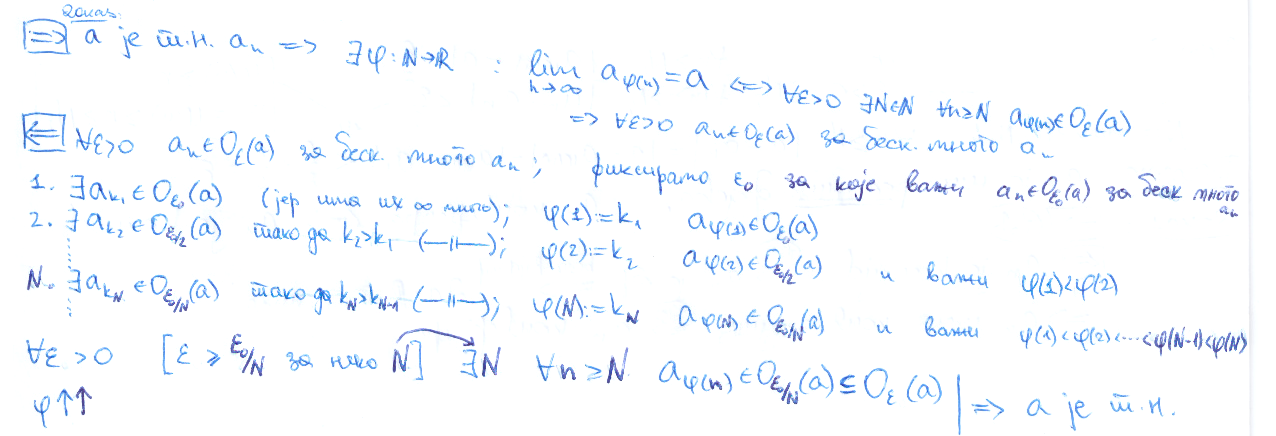 Доказ:
⇒ a је т.н. aₙ ⇒ ∃φ: ℕ→ℝ : lim_{n→∞} a_{φ(n)} = a ⇔ ∀ε>0 ∃N∈ℕ ∀n≥N a_{φ(n)}∈O_ε(a)
⇒ ∀ε>0 aₙ∈O_ε(a) за беск. много aₙ
⇐ ∀ε>0 aₙ∈O_ε(a) за беск. много aₙ; фиксирамо ε₀ за које важи aₙ∈O_{ε₀}(a) за беск много aₙ
1. ∃a_{k₁}∈O_{ε₀}(a) (јер има их ∞ много); φ(1):=k₁ a_{φ(1)}∈O_{ε₀}(a)
2. ∃a_{k₂}∈O_{ε₀/2}(a) тако да k₂>k₁ (—||—); φ(2):=k₂ a_{φ(2)}∈O_{ε₀/2}(a) и важи φ(1)<φ(2)
N. ∃a_{k_N}∈O_{ε₀/N}(a) тако да k_N>k_{N-1} (—||—); φ(N):=k_N a_{φ(N)}∈O_{ε₀/N}(a) и важи φ(1)<φ(2)<...<φ(N-1)<φ(N)
∀ε>0 [ε ≥ ε₀/N за неко N] ∃N ∀n≥N a_{φ(n)}∈O_{ε₀/N}(a)⊆O_ε(a)
φ↑↑ ⇒ a је т.н.